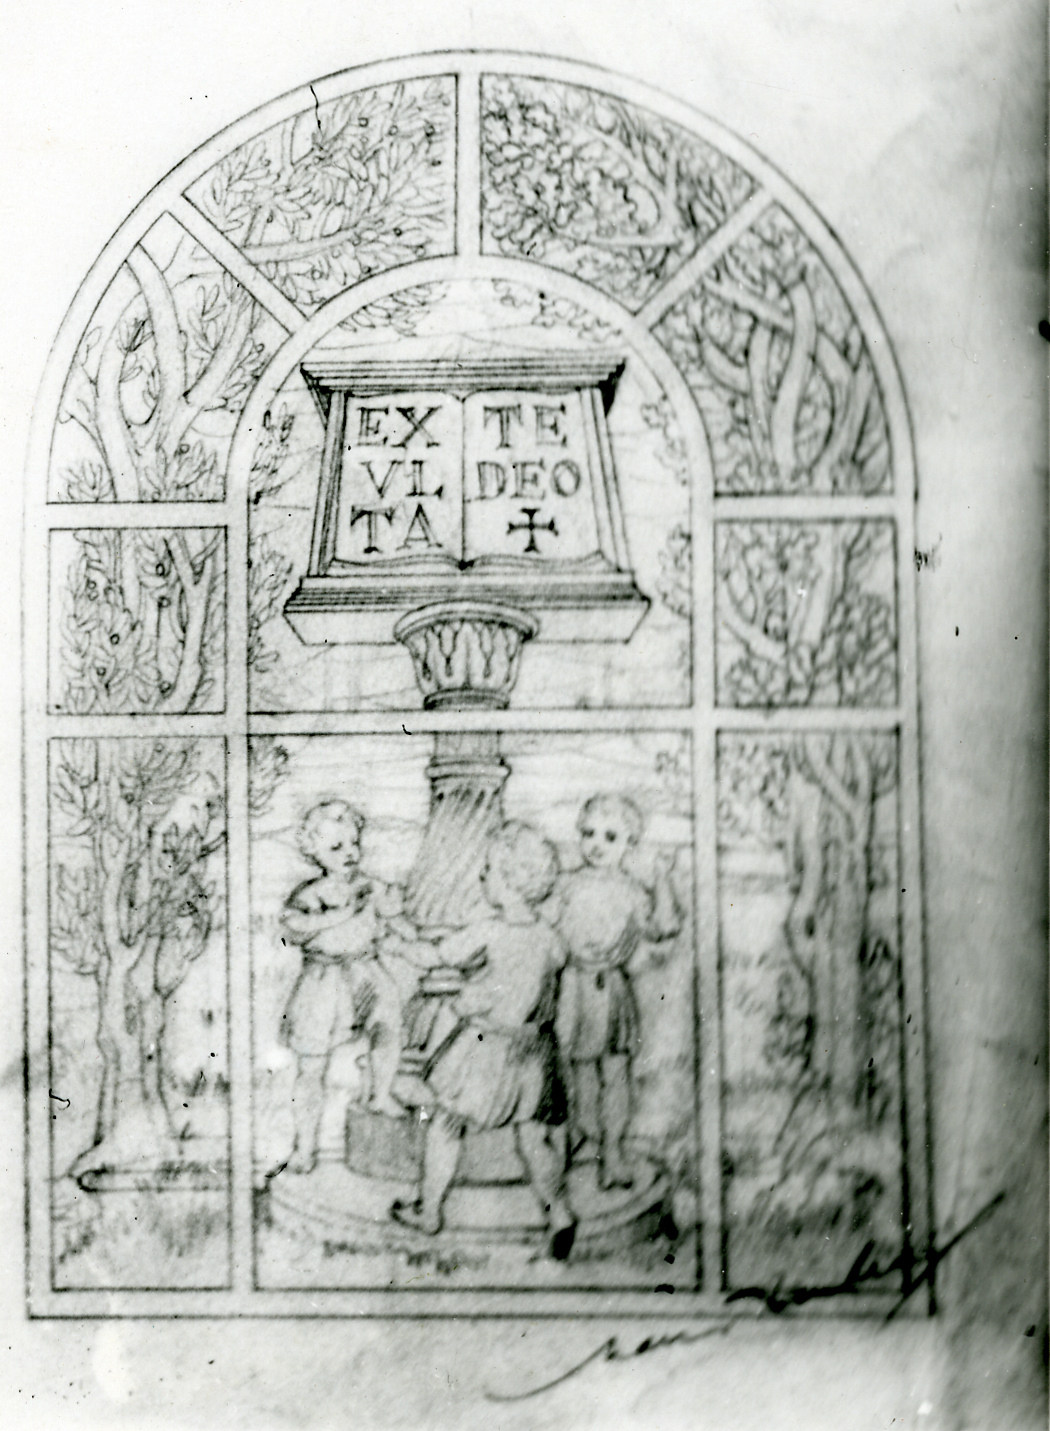 EX
VL
TA
TE
DEO
✝